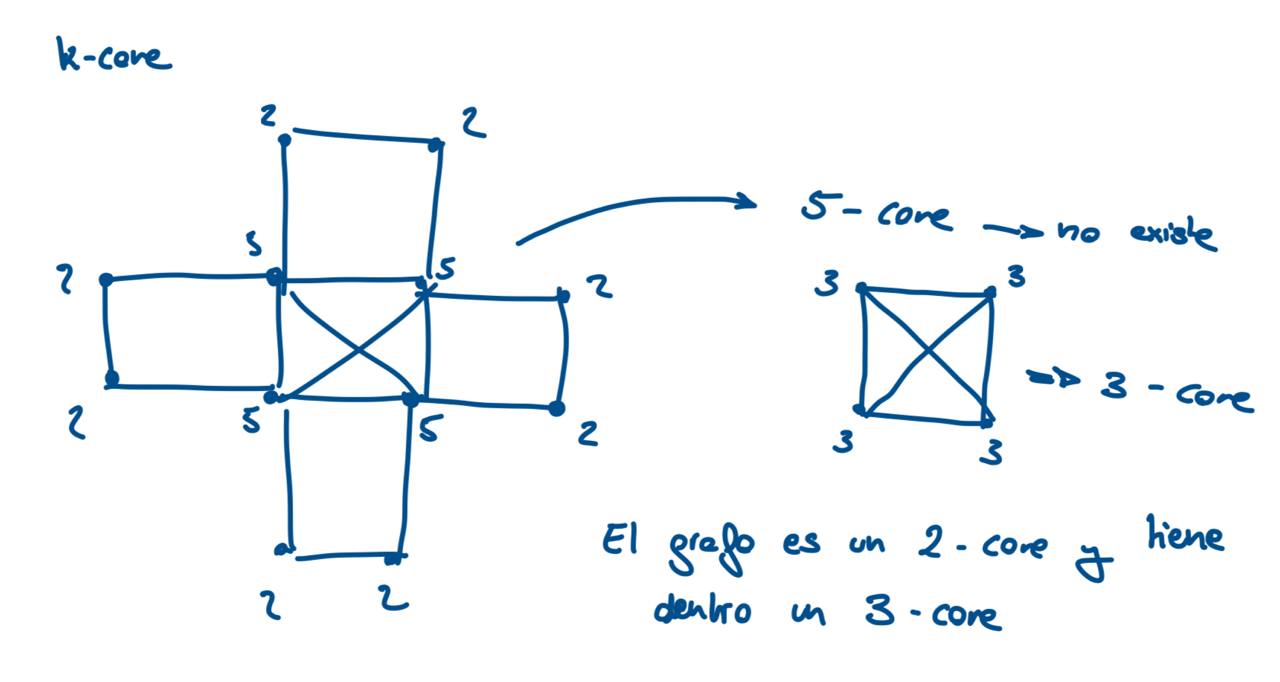 k-core
2 2
5 5
2 2
2 5 5 2
2 2
5-core → no existe
3 3
3 3
→ 3-core
El grafo es un 2-core y tiene
dentro un 3-core